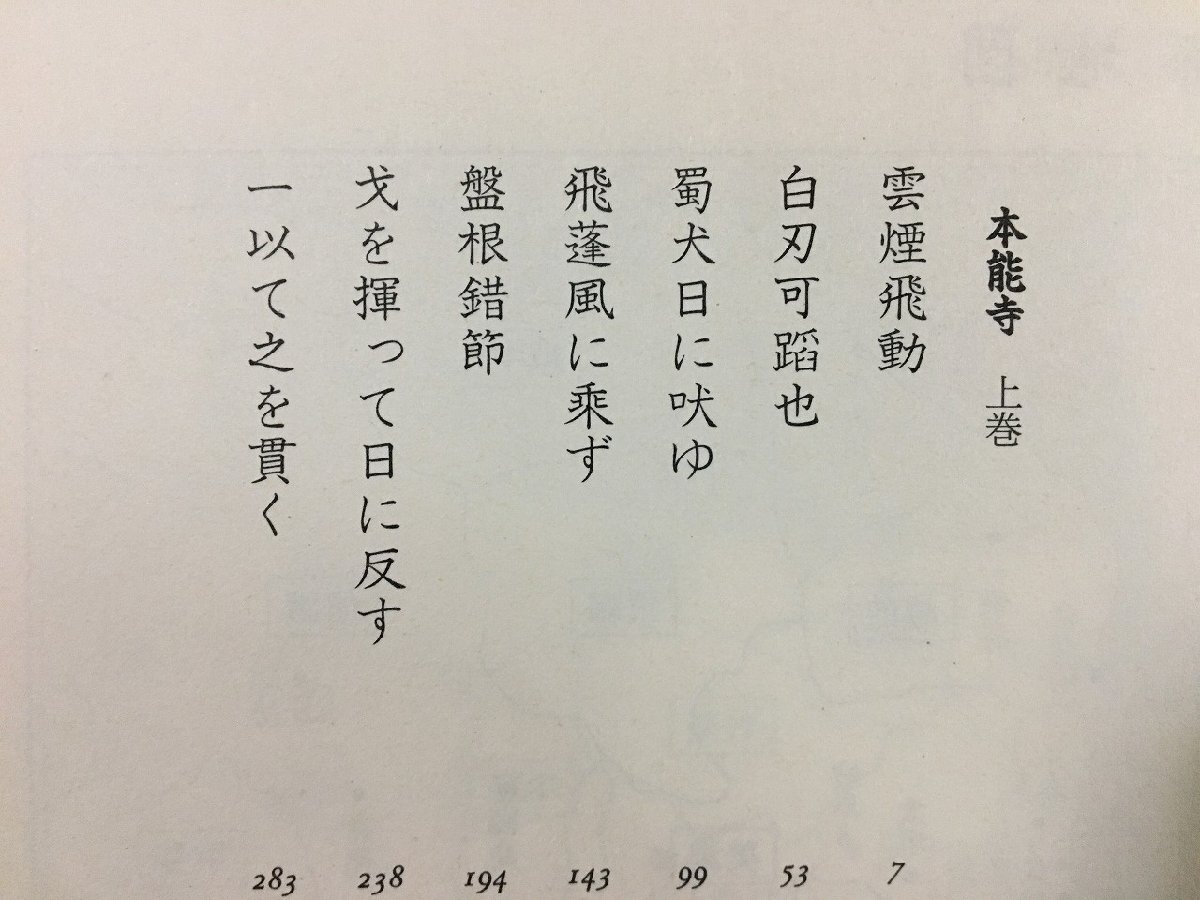 本能寺 上巻
雲煙飛動
7
白刃可蹈也
53
蜀犬日に吠ゆ
99
飛蓬風に乗ず
143
盤根錯節
194
戈を揮って日に反す
238
一以て之を貫く
283